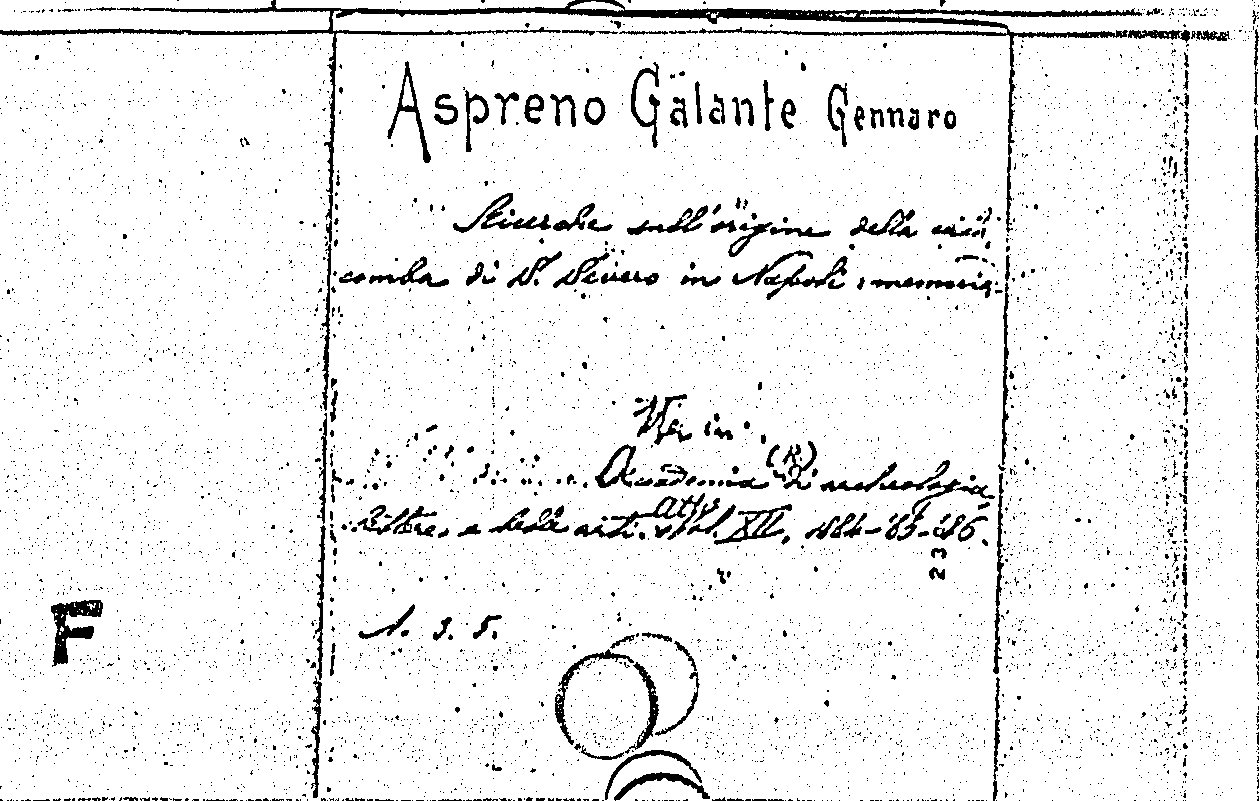 Aspreno Galante Gennaro
Ricerche sull'origine della cata
comba di S. Severo in Napoli: memoria
Ver in
Accademia (R.) di archeologia,
lettere, e belle arti. Atti, Vol. XII, 1884-'85-'86.
23
A. 3. 5.
F